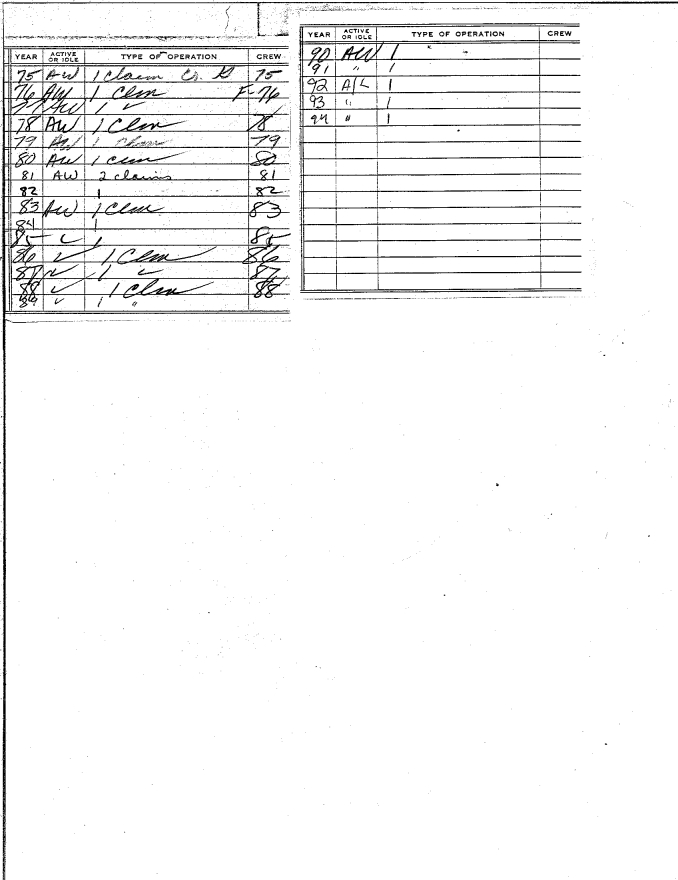 YEAR ACTIVE OR IDLE TYPE OF OPERATION CREW
75 AW 1 Claim 75
76 AW 1 Clem F-76
77 AW 1 ✓
78 AW 1 Clem 78
79 AW 1 79
80 AW 1 clem 80
81 AW 2 claims 81
82 1 82
83 AW 1 Clem 83
84 1
85 ✓ 1 85
86 ✓ 1 Clem 86
87 ✓ 1 ✓ 87
88 ✓ 1 Clem 88
89 ✓ 1 "
YEAR ACTIVE OR IDLE TYPE OF OPERATION CREW
90 AW 1 "
91 " 1
92 A/L 1
93 " 1
94 " 1